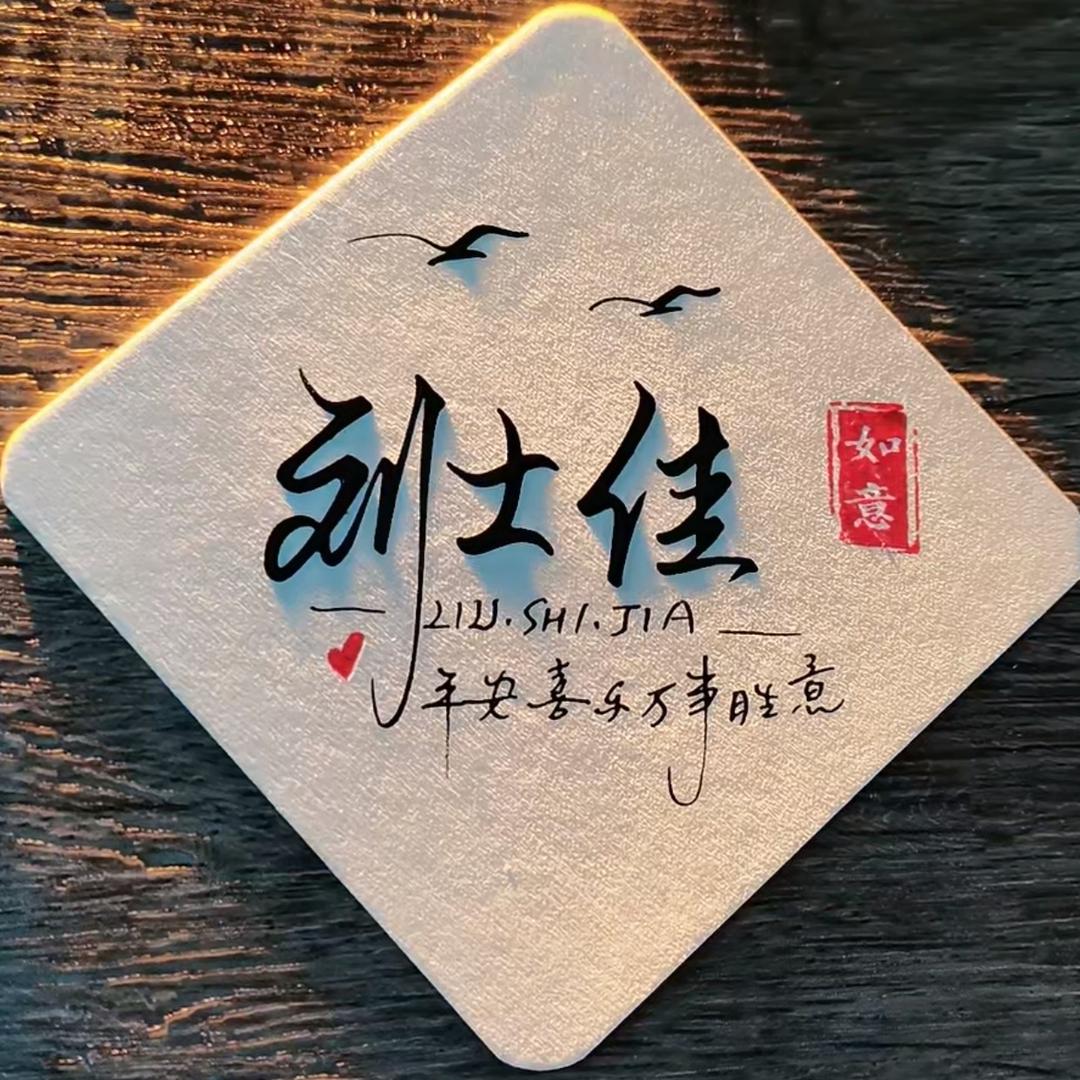 刘士佳
LIU.SHI.JIA
年安喜乐万事胜意
如意